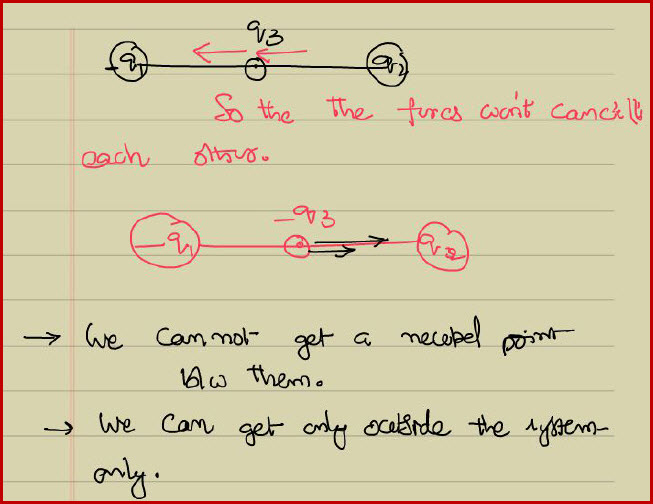 q3
-q1 q2
So the the forcs won't cancel
each other.
-q3
-q1 q2
→ We cannot get a neutral point
b/w them.
→ We can get only outside the system
only.